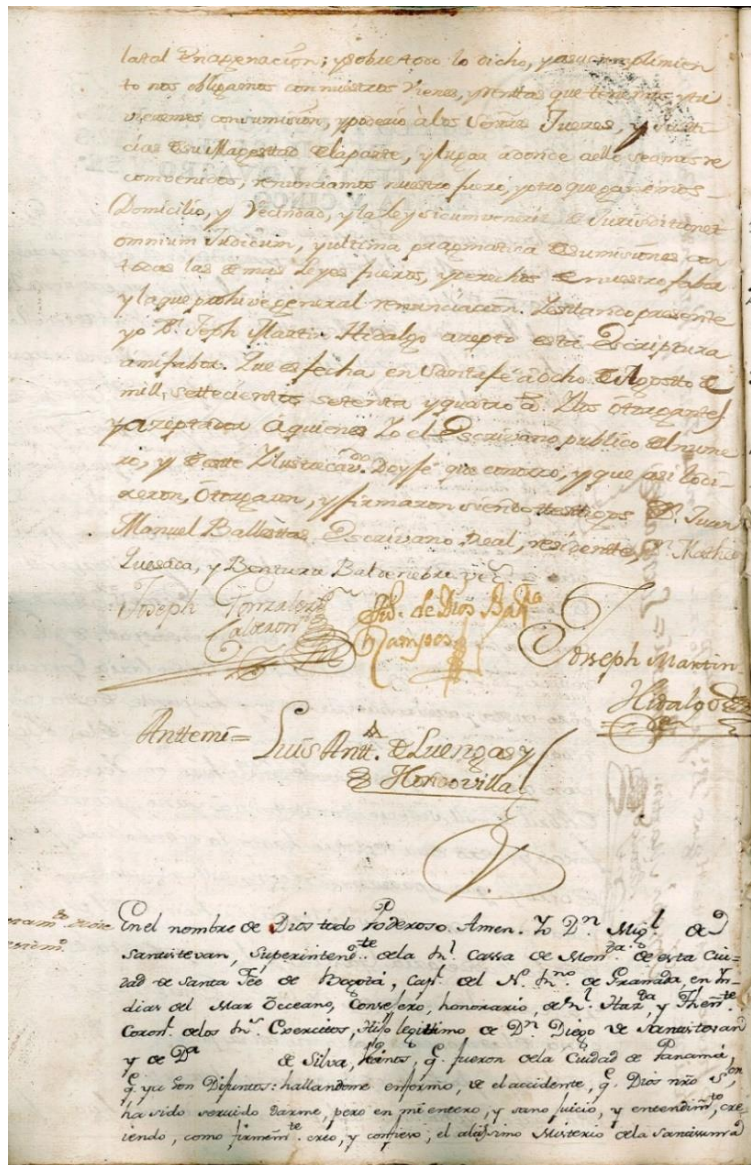 la tal Enagenación; y sobre todo lo dicho, y a su cumplimien
to nos obligamos con nuestros vienes, y Rentas que tenemos y tu
vieremos con sumision, y poderio à los Señores Jueces, y Justi
cias de su Magestad de la parte, y lugar a donde a ello seamos re
combenidos, renunciamos nuestro fuero, y otro que ganemos
Domicilio, y Vecindad, y la Ley sicumvenerit de Jurisditione
omnium Judicum, y ultima pragmatica de sumisiones con
todas las demas Leyes fueros, y derechos de nuestro fabor
y la que prohive general renunciacion. Y estando presente
yo Dn. Joseph Martin Hidalgo acepto esta Escriptura
a mi fabor. Que es fecha en Santafé à ocho de Agosto de
mill, settecientos setenta y quatro as. Y los Otorgantes
y aceptador à quienes Yo el Escrivano publico del nume
ro, y de este Doy fé que conozco, y que asi lo di-
xeron, Otorgaron, y firmaron siendo testigos Dn. Juan
Manuel Ballestas, Escrivano Real, residente, Dn. Mathias
Quesada, y Bentura
Joseph Gonzalez
Calderon
de Dios
Campos
Joseph Martin
Hidalgo
Anttemi=
Luis Antt. de Luengas y
Hondovilla
En el nombre de Dios todo Poderoso. Amen. Yo Dn. Migl. de
Santistevan, Superintendte. de la Rl. Cassa de Monda. de esta Ciu-
dad de Santa Fée de Bogotá, Capl. del N. Rno. de Granada, en In-
dias del Mar Occeano, Consejero, honorario, de Rl. Hazda. y Thente.
Coronl. de los Rs. Exercitos, Hijo legittimo de Dn. Diego de Santistevan
y de Da. de Silva, q. fueron de la Ciudad de Panamá,
q. ya son Difuntos: hallandome enfermo, de el accidente, q. Dios nro Sor.
ha sido servido darme, pero en mi entero, y sano juicio, y entendimto, cre
iendo, como firmemte. creo, y confieso, el altissimo Misterio de la Santissima